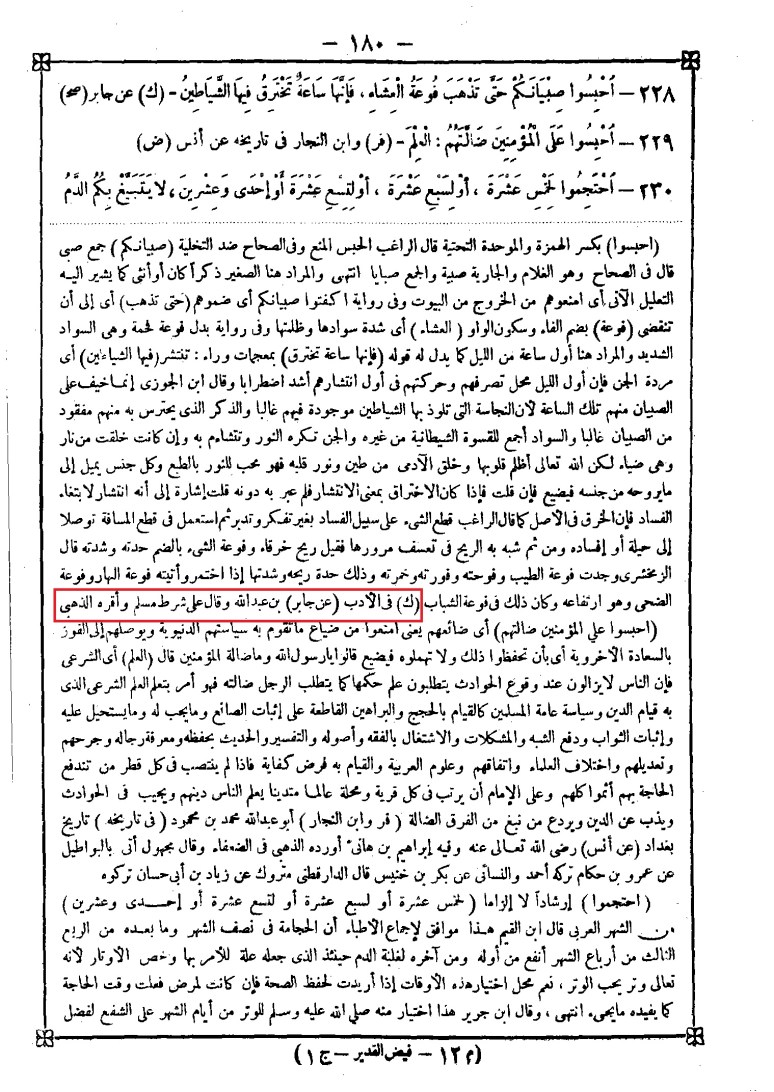 — ١٨٠ —
٢٢٨ — اَحْبِسُوا صِبْيَانَكُمْ حَتَّى تَذْهَبَ فُوعَةُ الْعِشَاءِ ، فَإِنَّهَا سَاعَةٌ تَخْتَرِقُ فِيهَا الشَّيَاطِينُ - (ك) عن جابر (صح)
٢٢٩ — اُحْبِسُوا عَلَى الْمُؤْمِنِينَ ضَالَّتَهُمْ : الْعِلْمَ - (فر) وابن النجار فى تاريخه عن أنس (ض)
٢٣٠ — اَحْتَجِمُوا لِخَمْسِ عَشْرَةَ ، أَوْ لِسَبْعِ عَشْرَةَ ، أَوْ لِتِسْعِ عَشْرَةَ أَوْ إِحْدَى وَعِشْرِينَ ، لَا يَتَبَيَّغْ بِكُمُ الدَّمُ
(احبسوا) بكسر الهمزة والموحدة التحتية قال الراغب الحبس المنع وفى الصحاح ضد التخلية (صبيانكم) جمع صبى
قال فى الصحاح وهو الغلام والجارية صبية والجمع صبايا انتهى والمراد هنا الصغير ذكرا كان أو أنثى كما يشير اليه
التعليل الآتى أى امنعوهم من الخروج من البيوت وفى رواية اكفتوا صبيانكم أى ضموهم (حتى تذهب) أى إلى أن
تنقضى (فوعة) بضم الفاء وسكون الواو (العشاء) أى شدة سوادها وظلمتها وفى رواية بدل فوعة فحمة وهى السواد
الشديد والمراد هنا أول ساعة من الليل كما يدل له قوله (فإنها ساعة تخترق) بمعجمات وراء : تنتشر (فيها الشياطين) أى
مردة الجن فإن أول الليل محل تصرفهم وحركتهم فى أول انتشارهم أشد اضطرابا وقال ابن الجوزى إنما خيف على
الصبيان منهم تلك الساعة لأن النجاسة التى تلوذ بها الشياطين موجودة فيهم غالبا والذكر الذى يحترس به منهم مفقود
من الصبيان غالبا والسواد أجمع للقسوة الشيطانية من غيره والجن تكره النور وتتشاءم به وإن كانت خلقت من نار
وهى ضياء لكن الله تعالى أظلم قلوبها وخلق الآدمى من طين ونور قلبه فهو محب للنور بالطبع وكل جنس يميل إلى
مايروحه من جنسه فيضيع فإن قلت فإذا كان الاختراق بمعنى الانتشار فلم عبر به دونه قلت إشارة إلى أنه انتشار لابتغاء
الفساد فإن الخرق فى الأصل كما قال الراغب قطع الشىء على سبيل الفساد بغير تفكر وتدبر ثم استعمل فى قطع المسافة توصلا
إلى حيلة أو إفساده ومن ثم شبه به الريح فى تعسف مرورها فقيل ريح خرقاء وفوعة الشىء بالضم حدته وشدته قال
الزمخشرى وجدت فوعة الطيب وفوحته وفورته وخمرته وذلك حدة ريحه وشدتها إذا اختمر وأتيته فوعة النهار وفوعة
الضحى وهو ارتفاعه وكان ذلك فى فوعة الشباب (ك) فى الأدب (عن جابر) بن عبدالله وقال على شرط مسلم وأقره الذهبى
(احبسوا علي المؤمنين ضالتهم) أى ضائعهم يعنى امنعوا من ضياع ماتقوم به سياستهم الدنيوية ويوصلهم إلى الفوز
بالسعادة الأخروية أى بأن تحفظوا ذلك ولا تهملوه فيضيع قالوا يارسول الله وما ضالة المؤمنين قال (العلم) أى الشرعى
فإن الناس لايزالون عند وقوع الحوادث يتطلبون علم حكمها كما يتطلب الرجل ضالته فهو أمر بتعلم العلم الشرعى الذى
به قيام الدين وسياسة عامة المسلمين كالقيام بالحجج والبراهين القاطعة على إثبات الصانع ومايجب له ومايستحيل عليه
وإثبات الثواب ودفع الشبه والمشكلات والاشتغال بالفقه وأصوله والتفسير والحديث بحفظه ومعرفة رجاله وجرحهم
وتعديلهم واختلاف العلماء واتفاقهم وعلوم العربية والقيام به فرض كفاية فاذا لم ينتصب فى كل قطر من تندفع
الحاجة بهم أثموا كلهم وعلى الإمام أن يرتب فى كل قرية ومحلة عالما متدينا يعلم الناس دينهم ويجيب فى الحوادث
ويذب عن الدين ويردع من نبغ من الفرق الضالة (فر وابن النجار) أبو عبدالله محمد بن محمود (فى تاريخه) تاريخ
بغداد (عن أنس) رضى الله تعالى عنه وفيه إبراهيم بن هانئ أورده الذهبى فى الضعفاء وقال مجهول أتى بالبواطيل
عن عمرو بن حكام تركه أحمد والنسائى عن بكر بن خنيس قال الدارقطنى متروك عن زياد بن أبى حسان تركوه
(احتجموا) إرشادا لا إلزاما (لخمس عشرة أو لسبع عشرة أو لتسع عشرة أو إحدى وعشرين)
من الشهر العربى قال ابن القيم هذا موافق لإجماع الأطباء أن الحجامة فى نصف الشهر وما بعده من الربع
الثالث من أرباع الشهر أنفع من أوله ومن آخره لغلبة الدم حينئذ الذى جعله علة للأمر بها وخص الأوتار لأنه
تعالى وتر يحب الوتر ، نعم محل اختيار هذه الأوقات إذا أريدت لحفظ الصحة فإن كانت لمرض فعلت وقت الحاجة
كما يفيده مايجىء انتهى ، وقال ابن جرير هذا اختيار منه صلى الله عليه وسلم للوتر من أيام الشهر على الشفع لفضل
(م ١٢ — فيض القدير — ج ١)